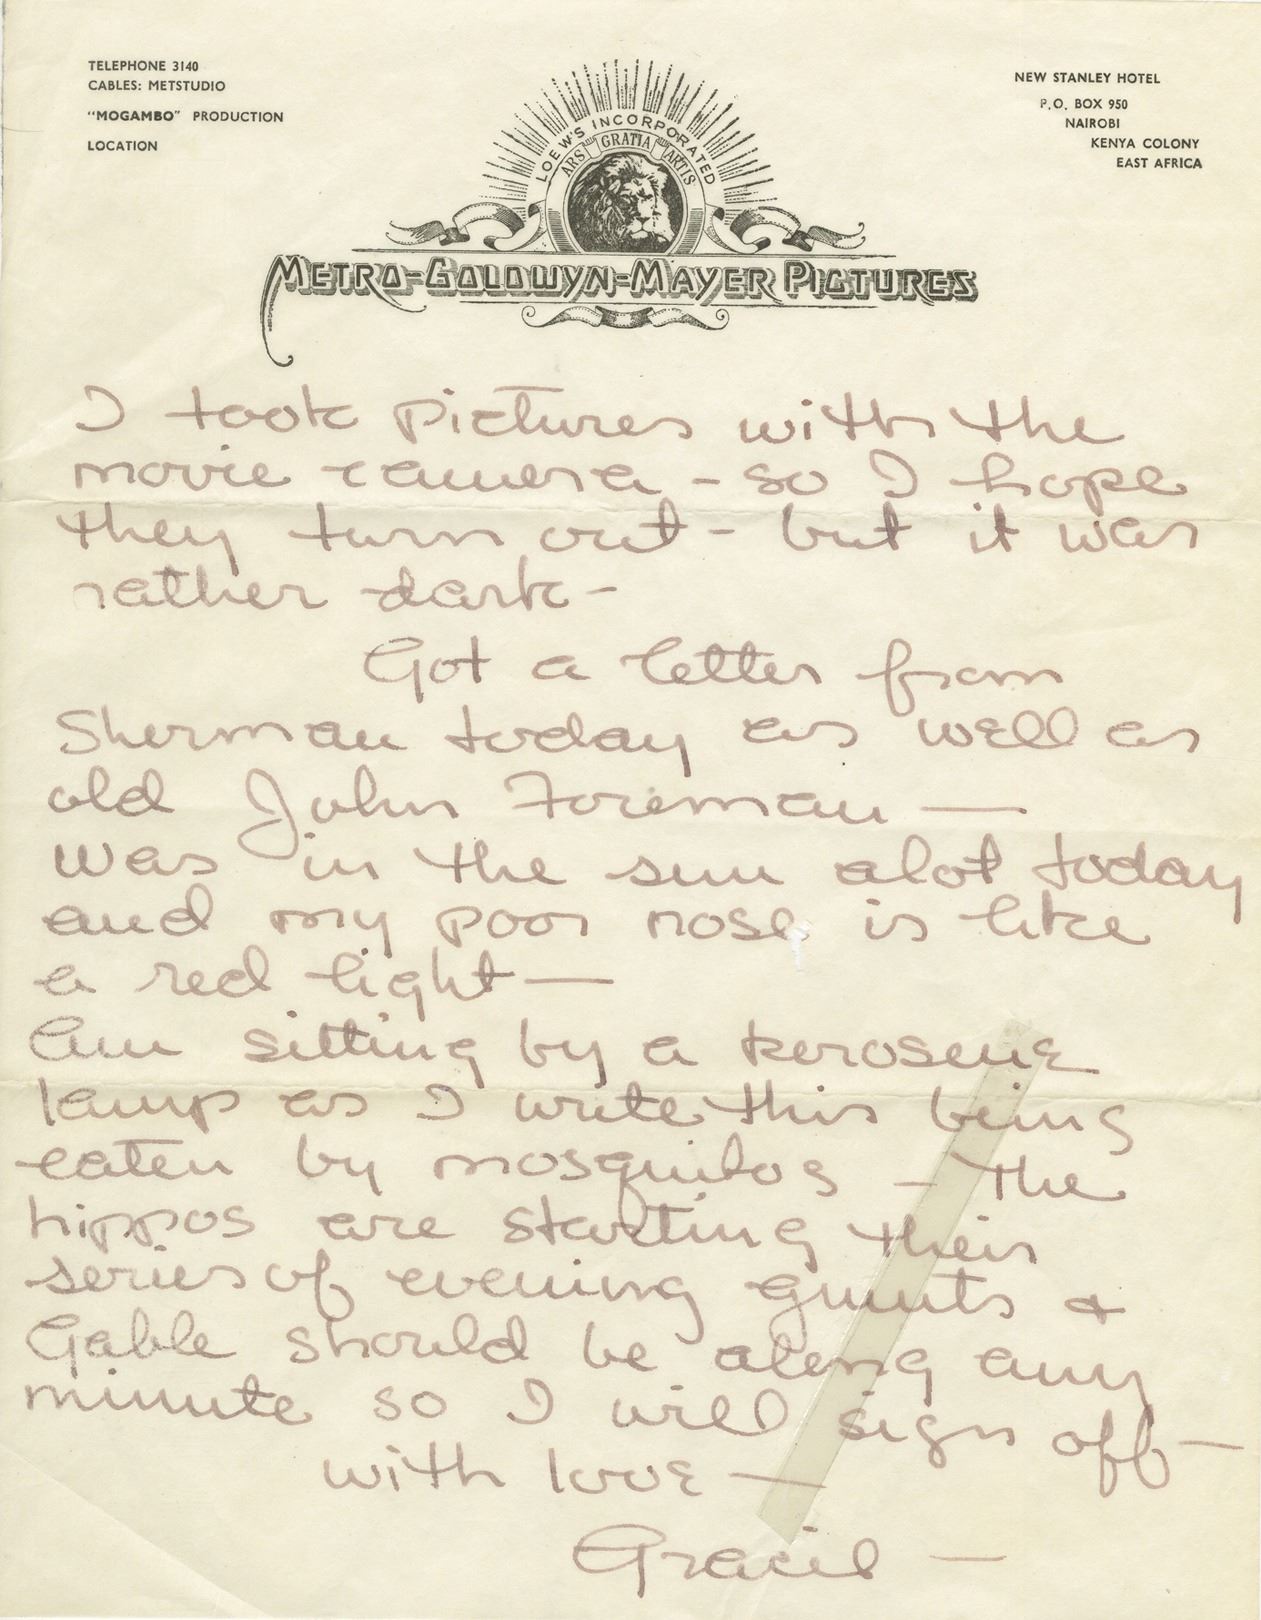 TELEPHONE 3140
CABLES: METSTUDIO
"MOGAMBO" PRODUCTION
LOCATION
NEW STANLEY HOTEL
P.O. BOX 950
NAIROBI
KENYA COLONY
EAST AFRICA
LOEW'S INCORPORATED
ARS GRATIA ARTIS
METRO-GOLDWYN-MAYER PICTURES
I took pictures with the
movie camera - so I hope
they turn out - but it was
rather dark -
Got a letter from
Sherman today as well as
old John Foreman —
Was in the sun alot today
and my poor nose is like
a red light —
Am sitting by a kerosene
lamp as I write this being
eaten by mosquitos - The
hippos are starting their
series of evening grunts +
Gable should be along any
minute so I will sign off —
with love —
Gracie —